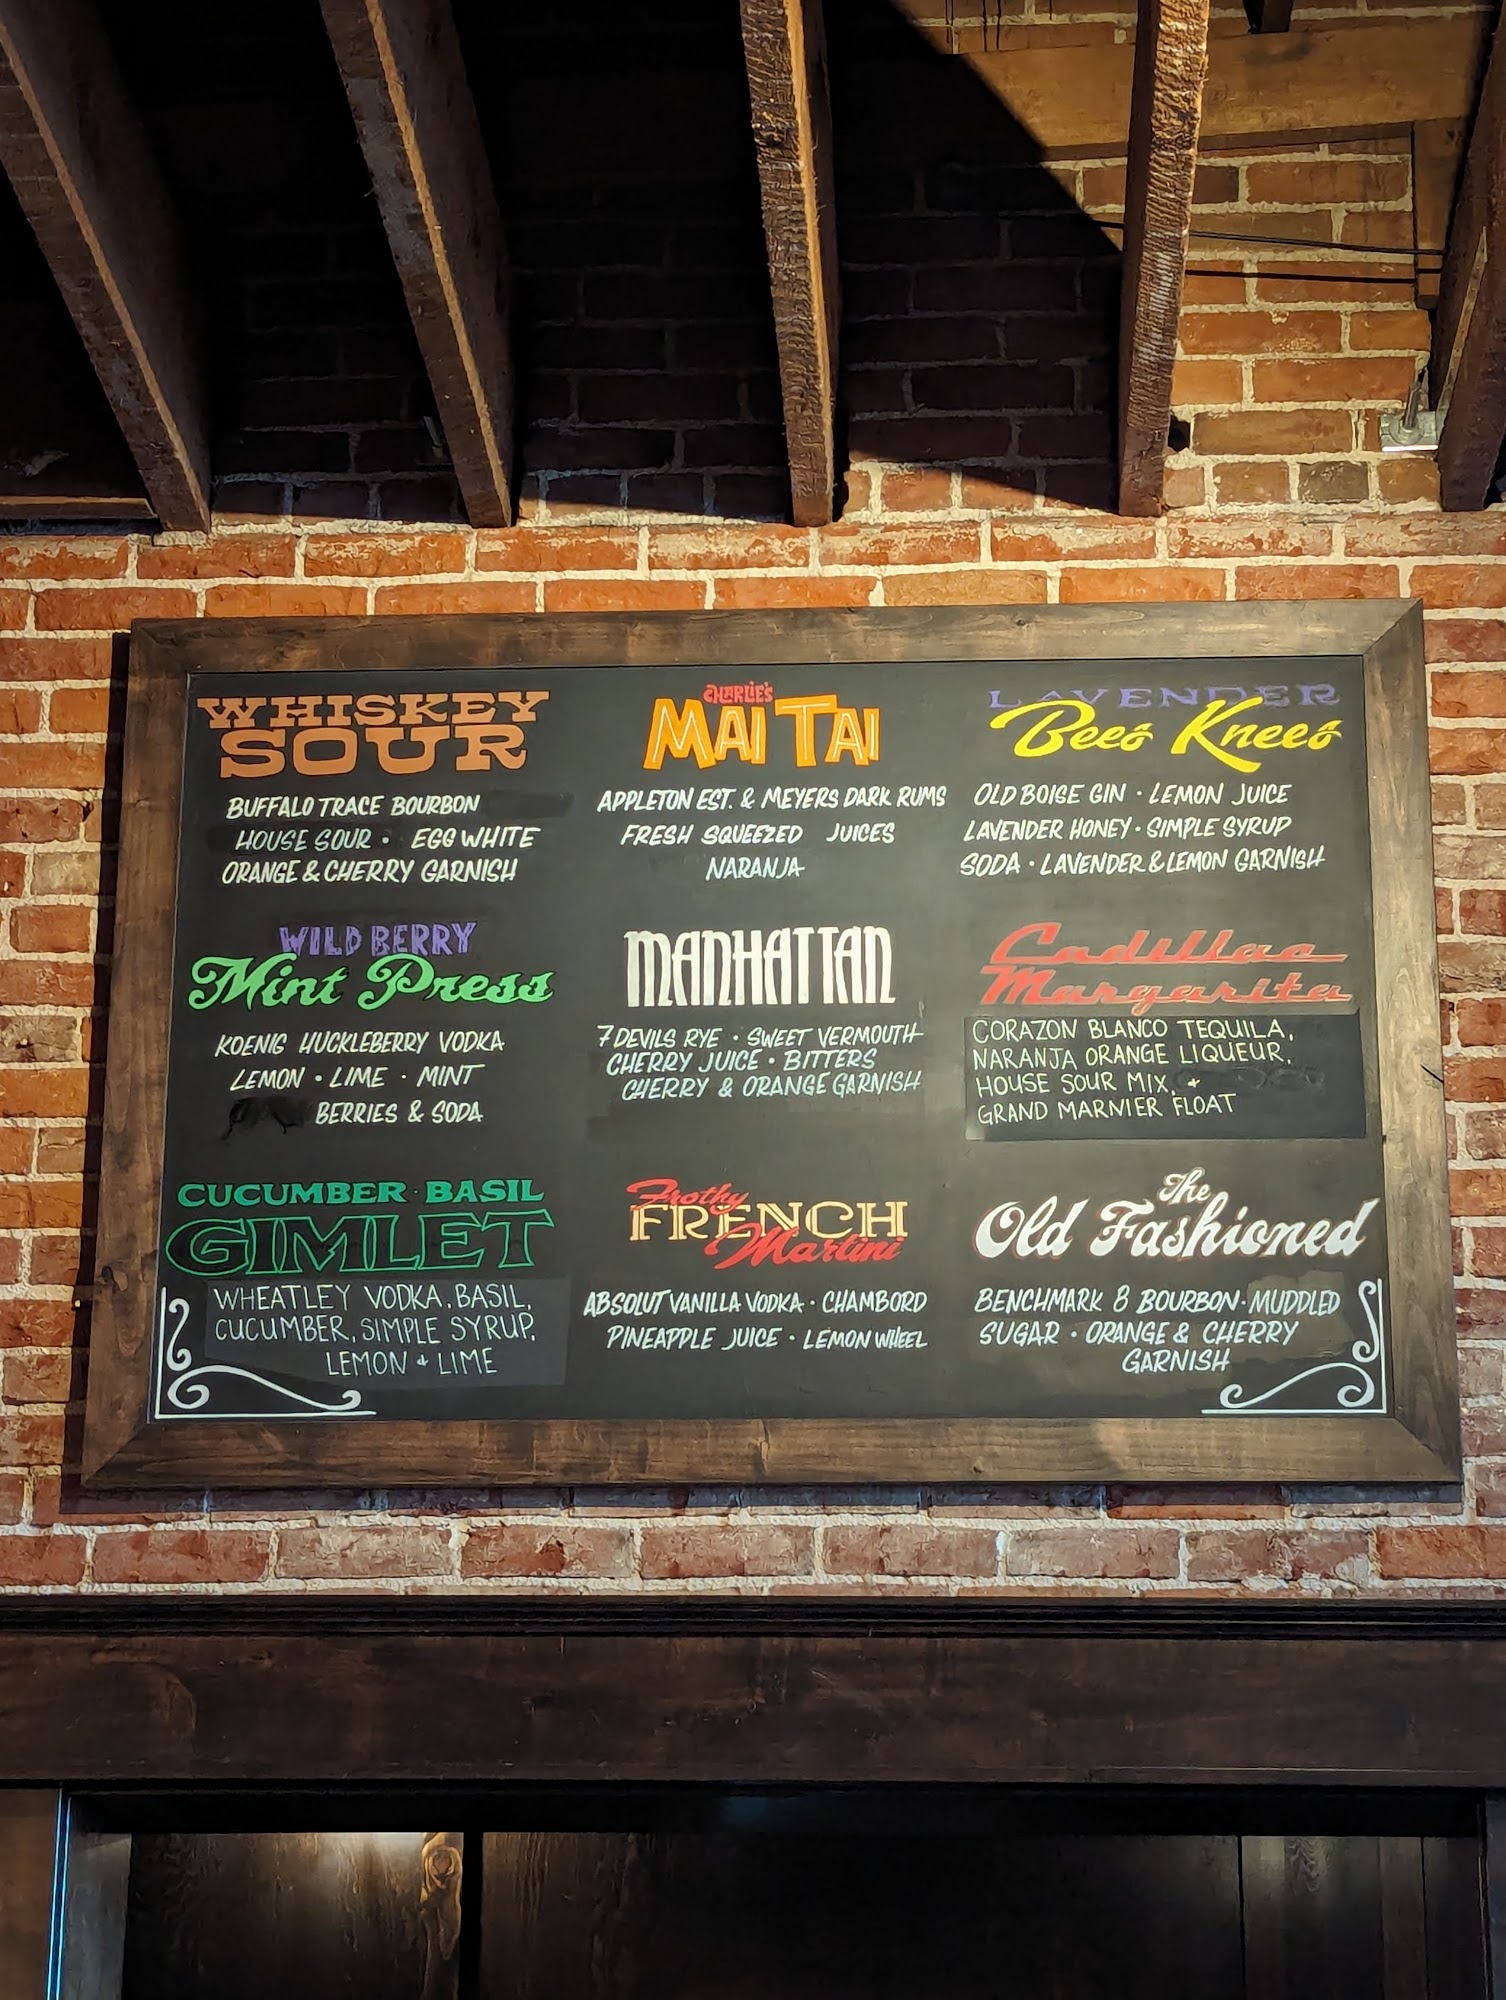 WHISKEY
SOUR
BUFFALO TRACE BOURBON
HOUSE SOUR · EGG WHITE
ORANGE & CHERRY GARNISH
CHARLIE'S
MAI TAI
APPLETON EST. & MEYERS DARK RUMS
FRESH SQUEEZED JUICES
NARANJA
LAVENDER
Bees Knees
OLD BOISE GIN · LEMON JUICE
LAVENDER HONEY · SIMPLE SYRUP
SODA · LAVENDER & LEMON GARNISH
WILD BERRY
Mint Press
KOENIG HUCKLEBERRY VODKA
LEMON · LIME · MINT
BERRIES & SODA
MANHATTAN
7 DEVILS RYE · SWEET VERMOUTH
CHERRY JUICE · BITTERS
CHERRY & ORANGE GARNISH
Cadillac
Margarita
CORAZON BLANCO TEQUILA,
NARANJA ORANGE LIQUEUR,
HOUSE SOUR MIX, +
GRAND MARNIER FLOAT
CUCUMBER · BASIL
GIMLET
WHEATLEY VODKA, BASIL,
CUCUMBER, SIMPLE SYRUP,
LEMON + LIME
Frothy
FRENCH
Martini
ABSOLUT VANILLA VODKA · CHAMBORD
PINEAPPLE JUICE · LEMON WHEEL
The
Old Fashioned
BENCHMARK 8 BOURBON · MUDDLED
SUGAR · ORANGE & CHERRY
GARNISH